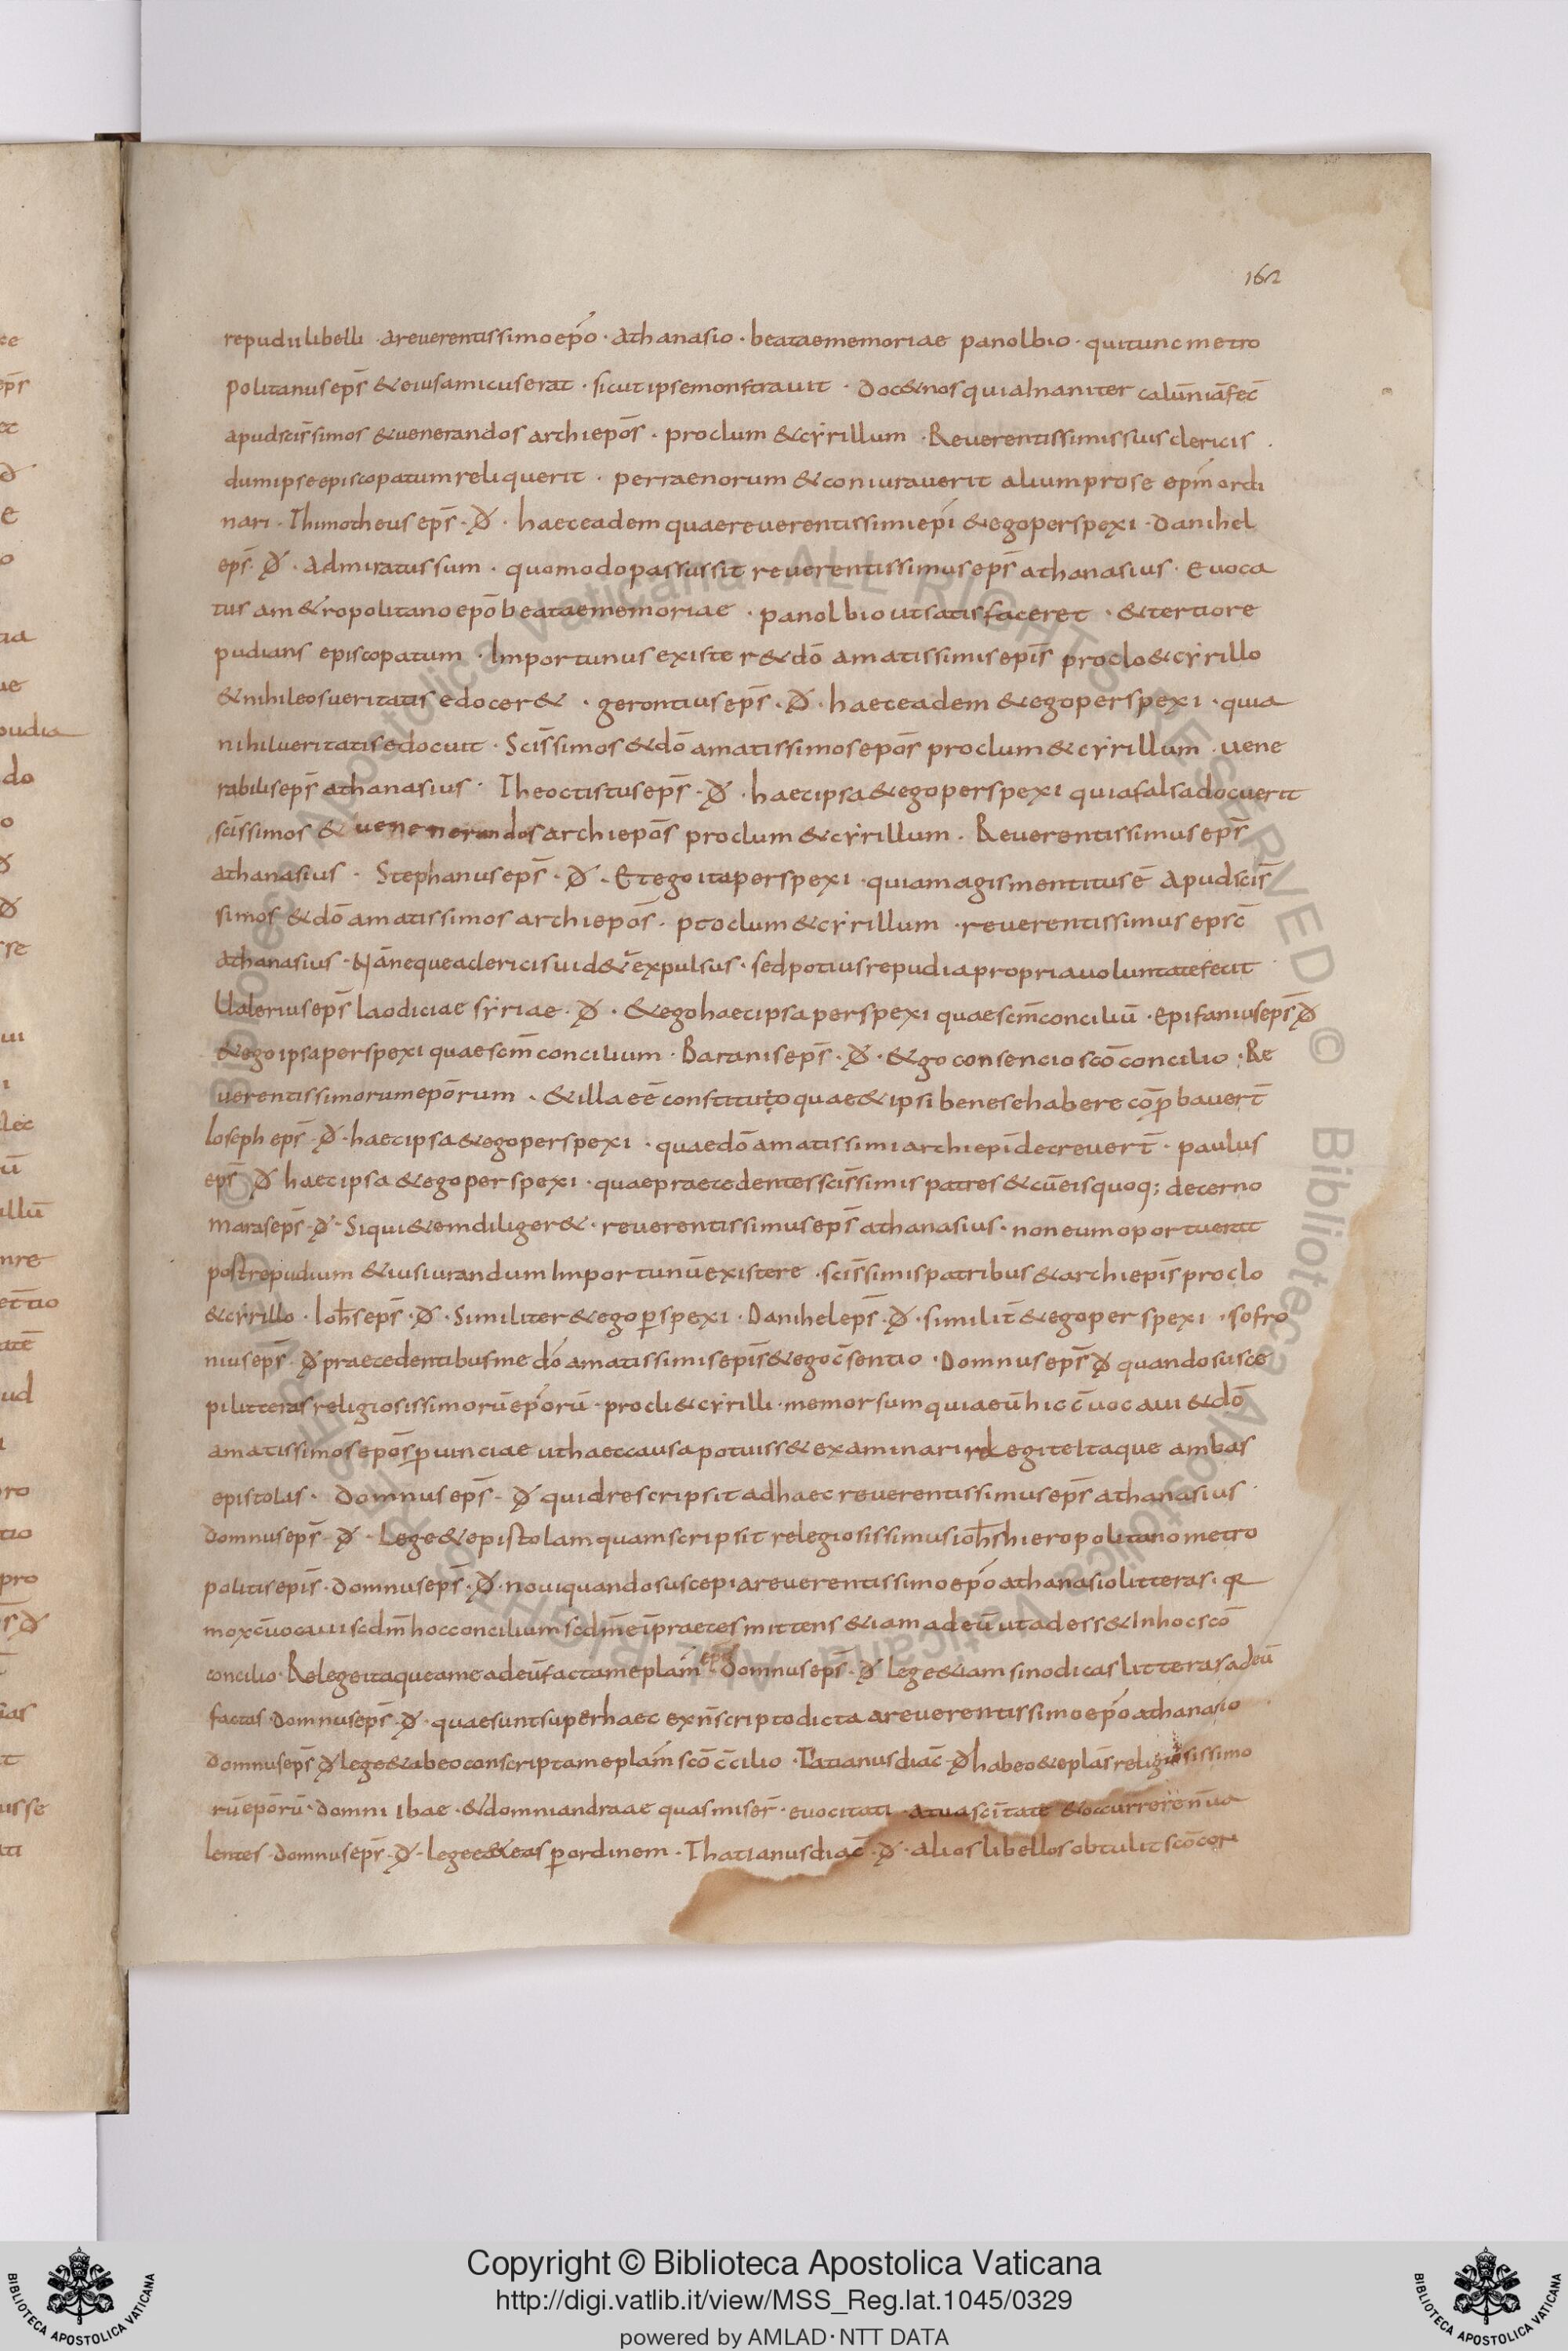 162
repudii libelli · a reverentissimo ep̄o · athanasio · beatae memoriae panolbio · qui tunc metro
politanus ep̄s & eius amicus erat · sicut ipse monstravit · doc& nos quia inaniter calūniā fec̄
apud sc̄issimos & venerandos archiep̄os · proclum & cyrillum · Reverentissimis suis clericis ·
dum ipse episcopatum reliquerit · perraenorum & coniuraverit alium pro se ep̄m ordi
nari · Thimotheus ep̄s · đ · haec eadem quae reverentissimi ep̄i & ego perspexi · danihel
ep̄s · đ · Admiratus sum · quomodo passus sit reverentissimus ep̄s athanasius · Evoca
tus a m&ropolitano ep̄o beatae memoriae · panolbio ut satis faceret · & tertio re
pudians episcopatum · Importunus exister& dō amatissimis ep̄is proclo & cyrillo
& nihil eos veritatis edocer& · gerontius ep̄s · đ · haec eadem & ego perspexi · quia
nihil veritatis edocuit · Sc̄issimos & dō amatissimos ep̄os proclum & cyrillum · vene
rabilis ep̄s athanasius · Theoctistus ep̄s · đ · haec ipsa & ego perspexi quia falsa docuerit
sc̄issimos & venenerandos archiep̄os proclum & cyrillum · Reverentissimus ep̄s
athanasius · Stephanus ep̄s · đ · Et ego ita perspexi · quia magis mentitus ē Apud sc̄is
simos & dō amatissimos archiep̄os · proclum & cyrillum · reverentissimus epsc̄
athanasius · Nā neque a clericis vid&̄ expulsus · sed potius repudia propria voluntate fecit
Valerius ep̄s laodiciae syriae · đ · & ego haec ipsa perspexi quae sc̄m conciliū · Epifanius ep̄s đ
& ego ipsa perspexi quae sc̄m concilium · Baranis ep̄s · đ · & go consencio sc̄o concilio · Re
verentissimorum ep̄orum · & illa eē constituto quae & ipsi bene se habere cōp̄bavert̄
Ioseph ep̄s · đ · haec ipsa & ego perspexi · quae dō amatissimi archiep̄i decrevert̄ · paulus
ep̄s đ haec ipsa & ego perspexi · quae praecedentes sc̄issimis patres & cū eis quoq; decerno
maras ep̄s · đ · Si qui&em diliger& · reverentissimus ep̄s athanasius · non eum oportuerit
post repudium & iusiurandum Importunū existere · sc̄issimis patribus & archiep̄is proclo
& cyrillo · Ioh̄s ep̄s · đ · Similiter & ego p̄spexi · Danihel ep̄s · đ · similit̄ & ego perspexi · sofro
nius ep̄s · đ praecedentibus me dō amatissimis ep̄is & ego c̄sentio · Domnus ep̄s đ quando susce
pi litteras religiosissimorū ep̄orū · procli & cyrilli · memor sum quia eū hic c̄vocavi & dō
amatissimos ep̄os p̄vinciae ut haec causa potuiss& examinari relegite Itaque ambas
epistolas · Domnus ep̄s · đ quid rescripsit ad haec reverentissimus ep̄s athanasius ·
Domnus ep̄s · đ · Lege & epistolam quam scripsit relegiosissimus ioh̄s hieropolitano metro
politis ep̄is · domnus ep̄s · đ · novi quando suscepi a reverentissimo ep̄o athanasio litteras ·
mox c̄vocavi scdm̄ hoc concilium scdm̄ ei p̄raeces mittens & iam ad eū ut adess& In hoc sc̄o
concilio · Relege itaque a me ad eū factam ep̄lam · domnus ep̄s · đ lege & iam sinodicas litteras ad eū
factas · domnus ep̄s · đ · quae sunt super haec ex n̄scripto dicta a reverentissimo ep̄o athanasio ·
Domnus ep̄s đ lege & ab eo conscriptam ep̄lam sc̄o c̄cilio · Tatianus diac̄ · đ habeo & ep̄las religiosissimo
rū ep̄orū · domni Ibae · & domni andraae quas miser̄ · evocitati · a tua sc̄itate & occurrere n̄ va
lentes · domnus ep̄s · đ · lege & eas p̄ ordinem · Thatianus diac̄ · đ · alios libellos obtulit sc̄o con
Copyright © Biblioteca Apostolica Vaticana
http://digi.vatlib.it/view/MSS_Reg.lat.1045/0329
powered by AMLAD·NTT DATA
BIBLIOTECA APOSTOLICA VATICANA
BIBLIOTECA APOSTOLICA VATICANA